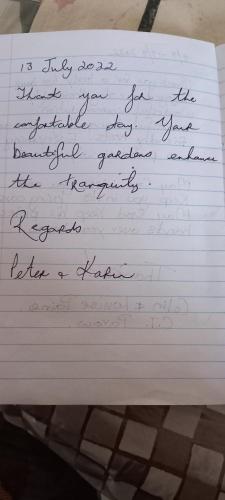 13 July 2022
Thank you for the
comfortable stay. Your
beautiful gardens enhance
the tranquility.
Regards
Peter & Karin